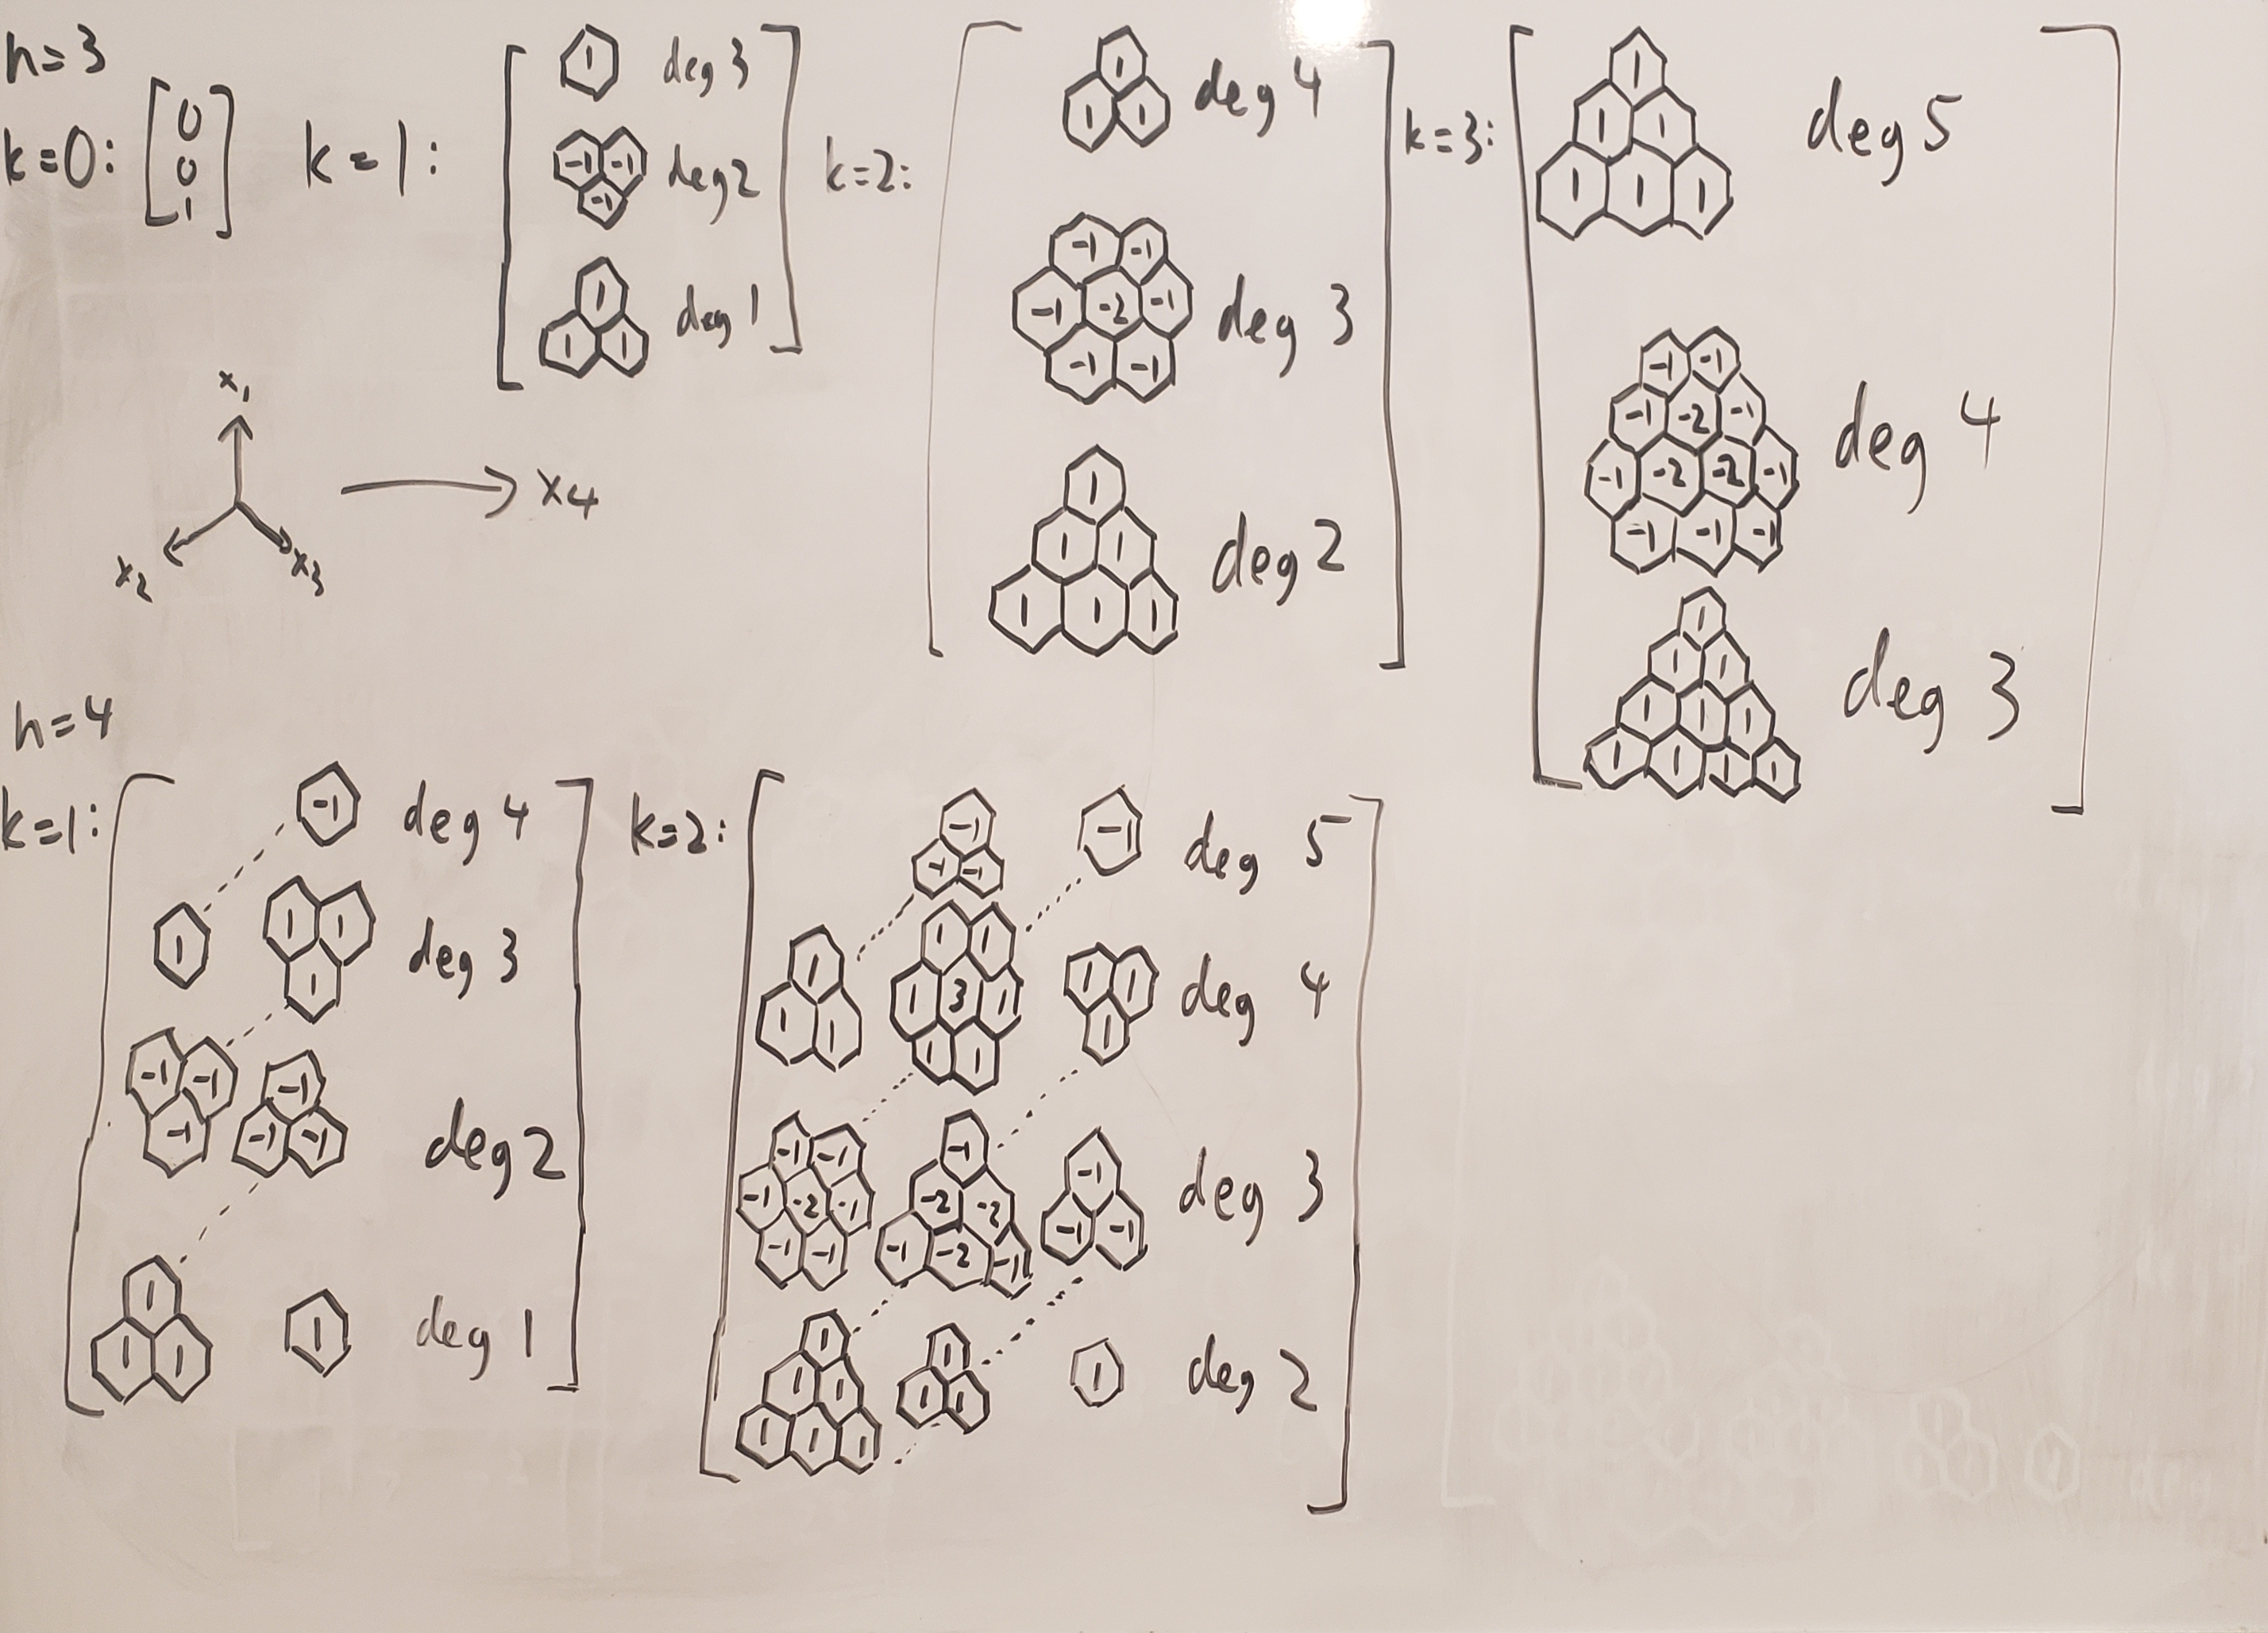 n=3
k=0: [0 0 1]
k=1:
1 deg 3
-1 -1
-1 deg 2
1
1 1 deg 1
k=2:
1
1 1 deg 4
-1 -1
-1 -2 -1 deg 3
-1 -1
1
1 1 deg 2
1 1 1
k=3:
1
1 1 deg 5
1 1 1
-1 -1
-1 -2 -1
-1 -2 -2 -1 deg 4
-1 -1 -1
1
1 1
1 1 1 deg 3
1 1 1 1
x1
x2 x3
x4
n=4
k=1:
-1 deg 4
1
1 1
1 deg 3
-1 -1
-1
-1
-1 -1 deg 2
1
1 1
1 deg 1
k=2:
-1
-1 -1
-1 deg 5
1
1 1
1 1
1 3 1
1 1
1 1
1 deg 4
-1 -1
-1 -2 -1
-1 -1
-1
-2 -2
-1 -2 -1
-1
-1 -1 deg 3
1
1 1
1 1 1
1
1 1
1 deg 2